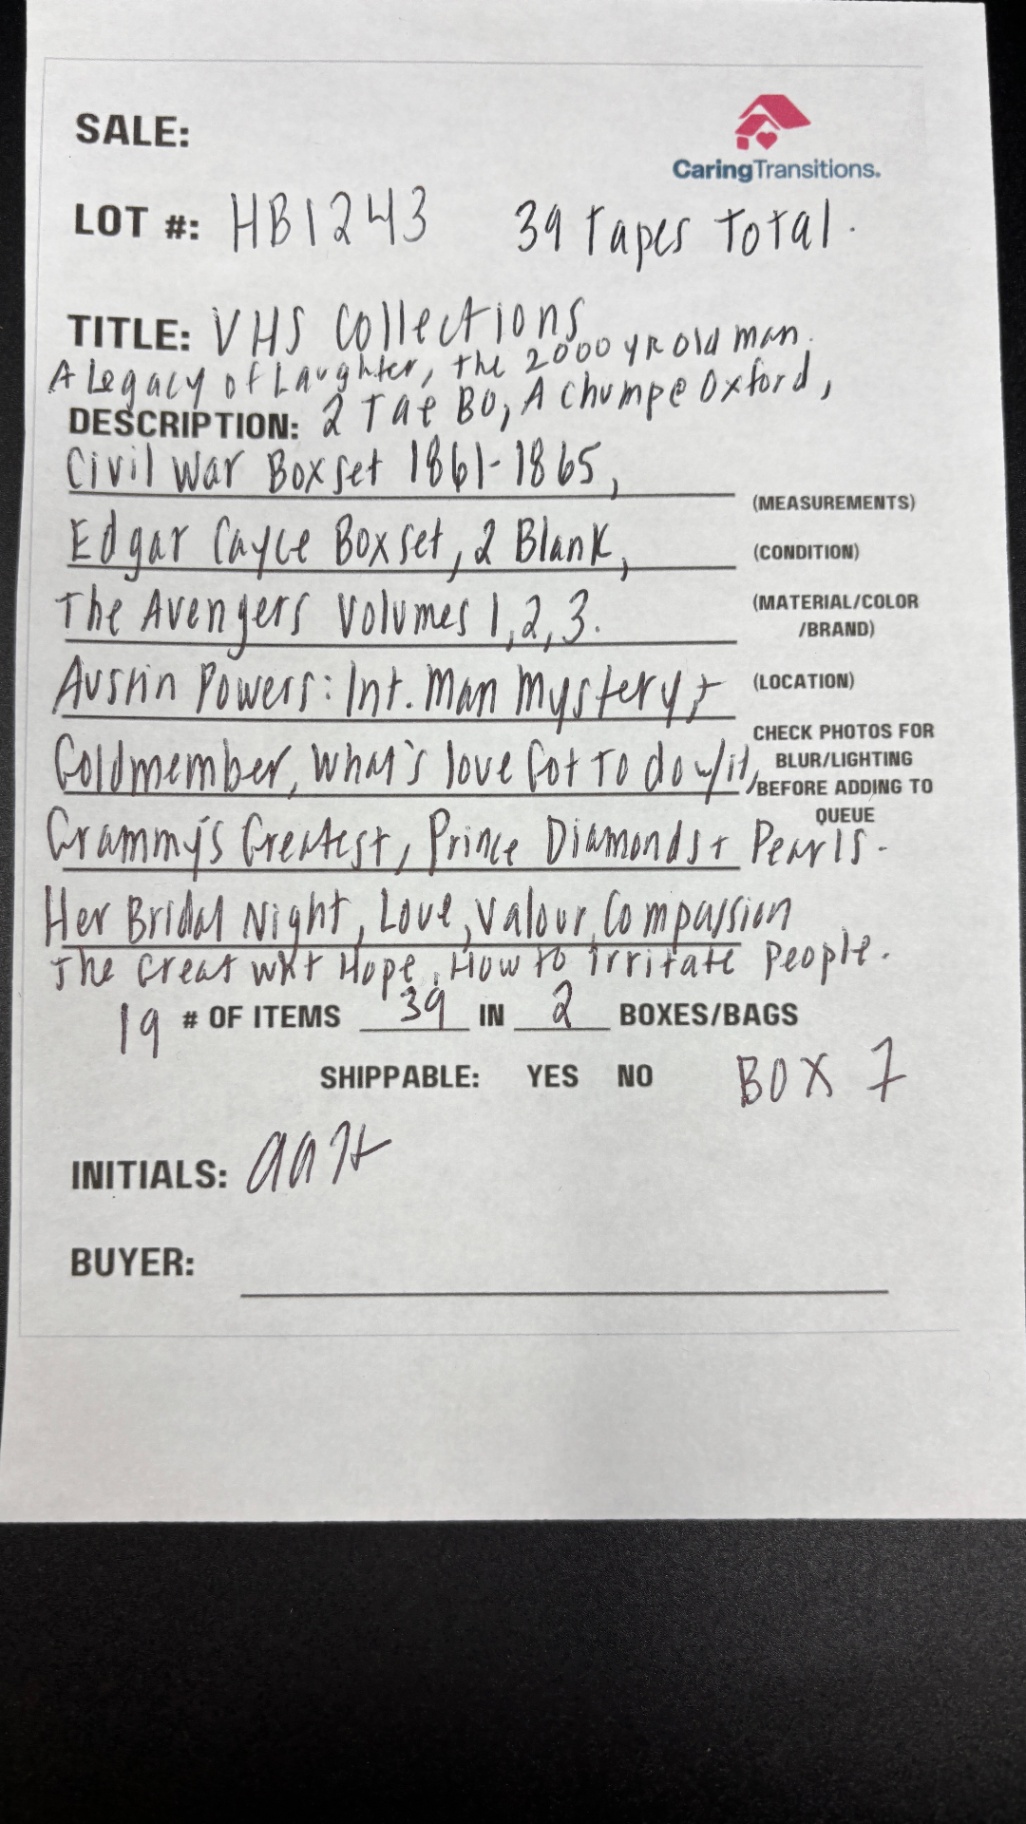 SALE:
CaringTransitions.
LOT #: HB1243 39 Tapes Total.
TITLE: VHS Collections
A Legacy of Laughter, the 2000 yr old man.
DESCRIPTION: 2 Tae Bo, A chump @ Oxford,
Civil War Boxset 1861-1865,
(MEASUREMENTS)
Edgar Cayce Boxset, 2 Blank,
(CONDITION)
The Avengers Volumes 1,2,3.
(MATERIAL/COLOR
/BRAND)
Austin Powers: Int. Man Mystery +
(LOCATION)
CHECK PHOTOS FOR
Goldmember, What's love Got To do w/it,
BLUR/LIGHTING
BEFORE ADDING TO
QUEUE
Grammy's Greatest, Prince Diamonds + Pearls.
Her Bridal Night, Love, Valour, Compassion
The Great Wht Hope, How to irritate People.
19 # OF ITEMS 39 IN 2 BOXES/BAGS
SHIPPABLE: YES NO BOX 7
INITIALS:
BUYER: